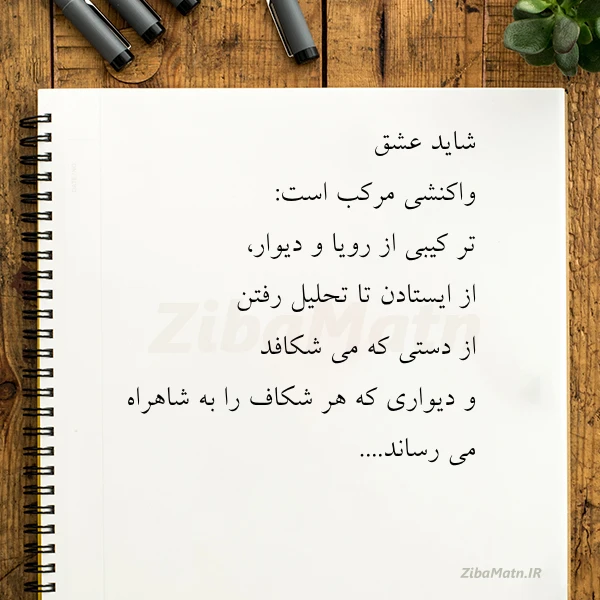 شاید عشق
واکنشی مرکب است:
تر کیبی از رویا و دیوار،
از ایستادن تا تحلیل رفتن
از دستی که می شکافد
و دیواری که هر شکاف را به شاهراه
می رساند....
ZibaMatn
ZibaMatn.IR